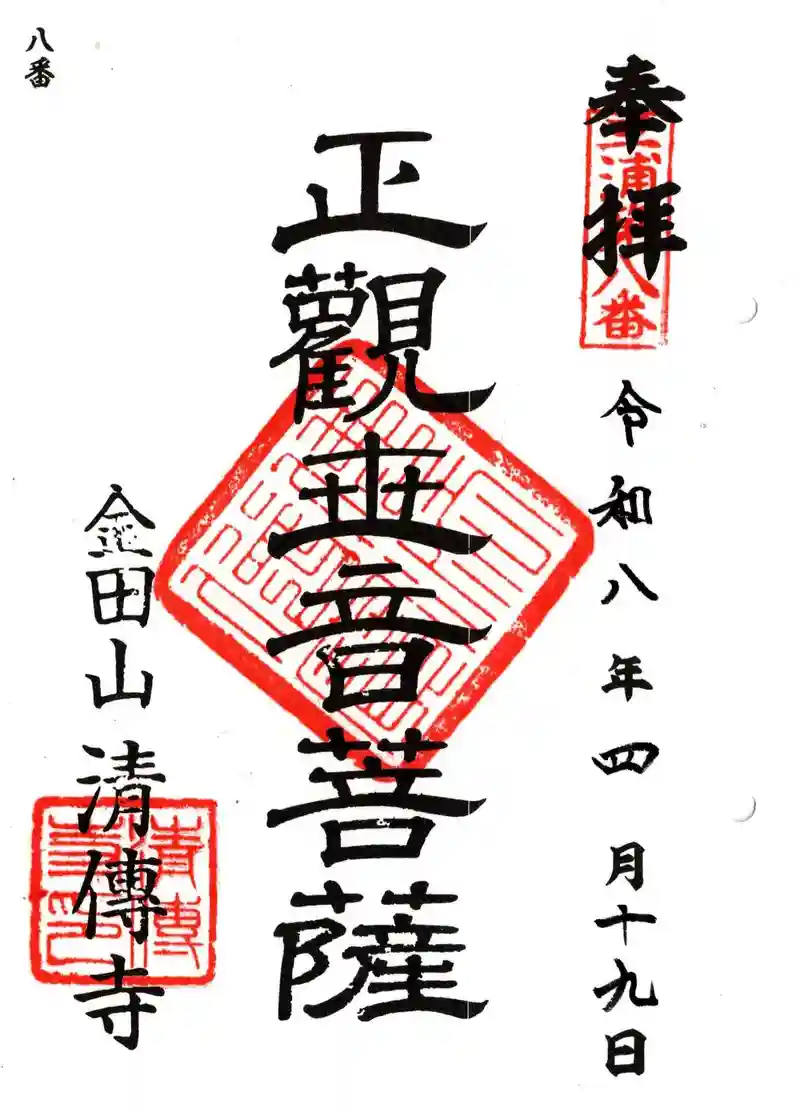 奉拝
三浦 八番
令和八年四月十九日
正觀世音菩薩
金田山清傳寺
清傳
寺印
八番